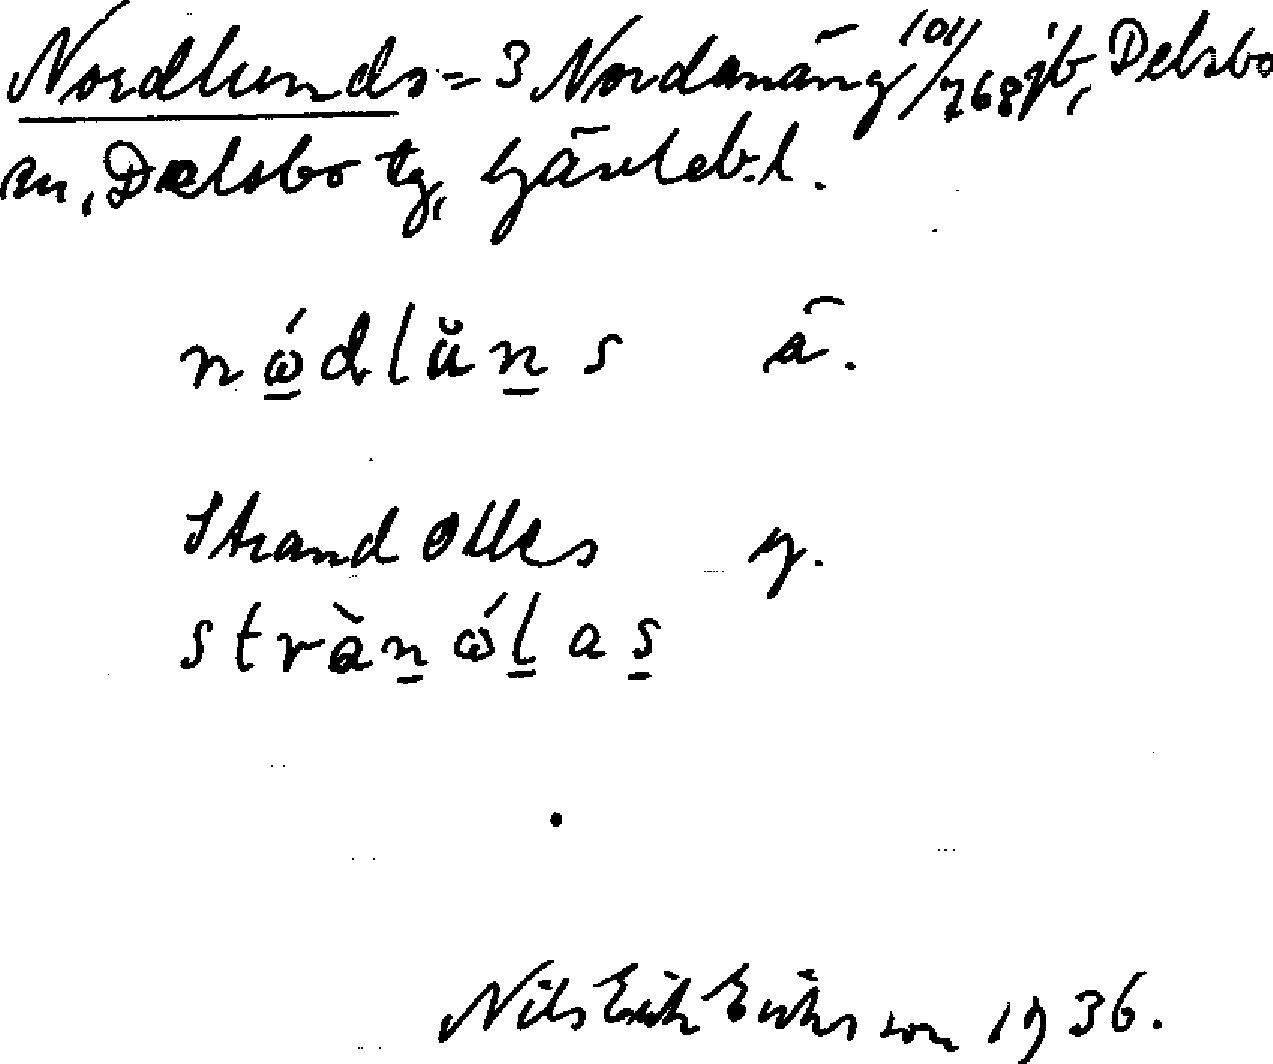 Nordlunds = 3 Nordanäng 101/768 jb, Delsbo
sn, Delsbo tg, Gävleb. l.
nώ̲dlŭn̲s ä.
Strand Olles y.
stràn̲ ώl̲as̲
Nils Erik Eriksson 1936.